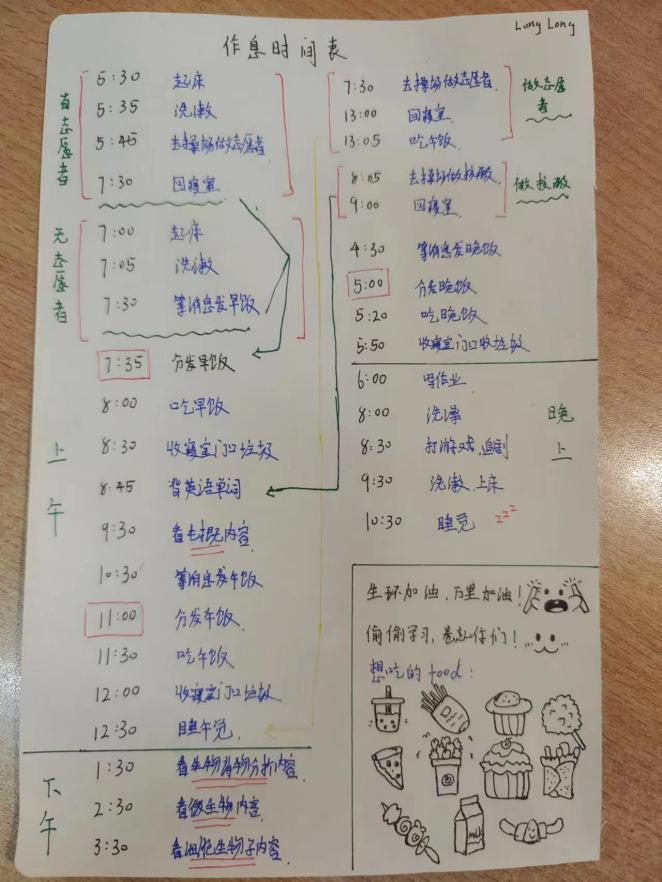 Long Long
作息时间表
有志愿者
5:30 起床
5:35 洗漱
5:45 去操场做志愿者
7:30 回寝室
无志愿者
7:00 起床
7:05 洗漱
7:30 等消息发早饭
7:35 分发早饭
上午
8:00 吃早饭
8:30 收寝室门口垃圾
8:45 背英语单词
9:30 看毛概内容
10:30 等消息发午饭
11:00 分发午饭
11:30 吃午饭
12:00 收寝室门口垃圾
12:30 睡午觉
下午
1:30 看生物药物分析内容
2:30 看微生物内容
3:30 看细胞生物学内容
7:30 去操场做志愿者
13:00 回寝室
13:05 吃午饭
做志愿者
8:05 去操场做核酸
9:00 回寝室
做核酸
4:30 等消息发晚饭
5:00 分发晚饭
5:20 吃晚饭
5:50 收寝室门口垃圾
晚上
6:00 写作业
8:00 洗澡
8:30 打游戏、追剧
9:30 洗漱、上床
10:30 睡觉 zzz
生环加油,万里加油!
偷偷学习,卷起你们!
想吃的food:
milk